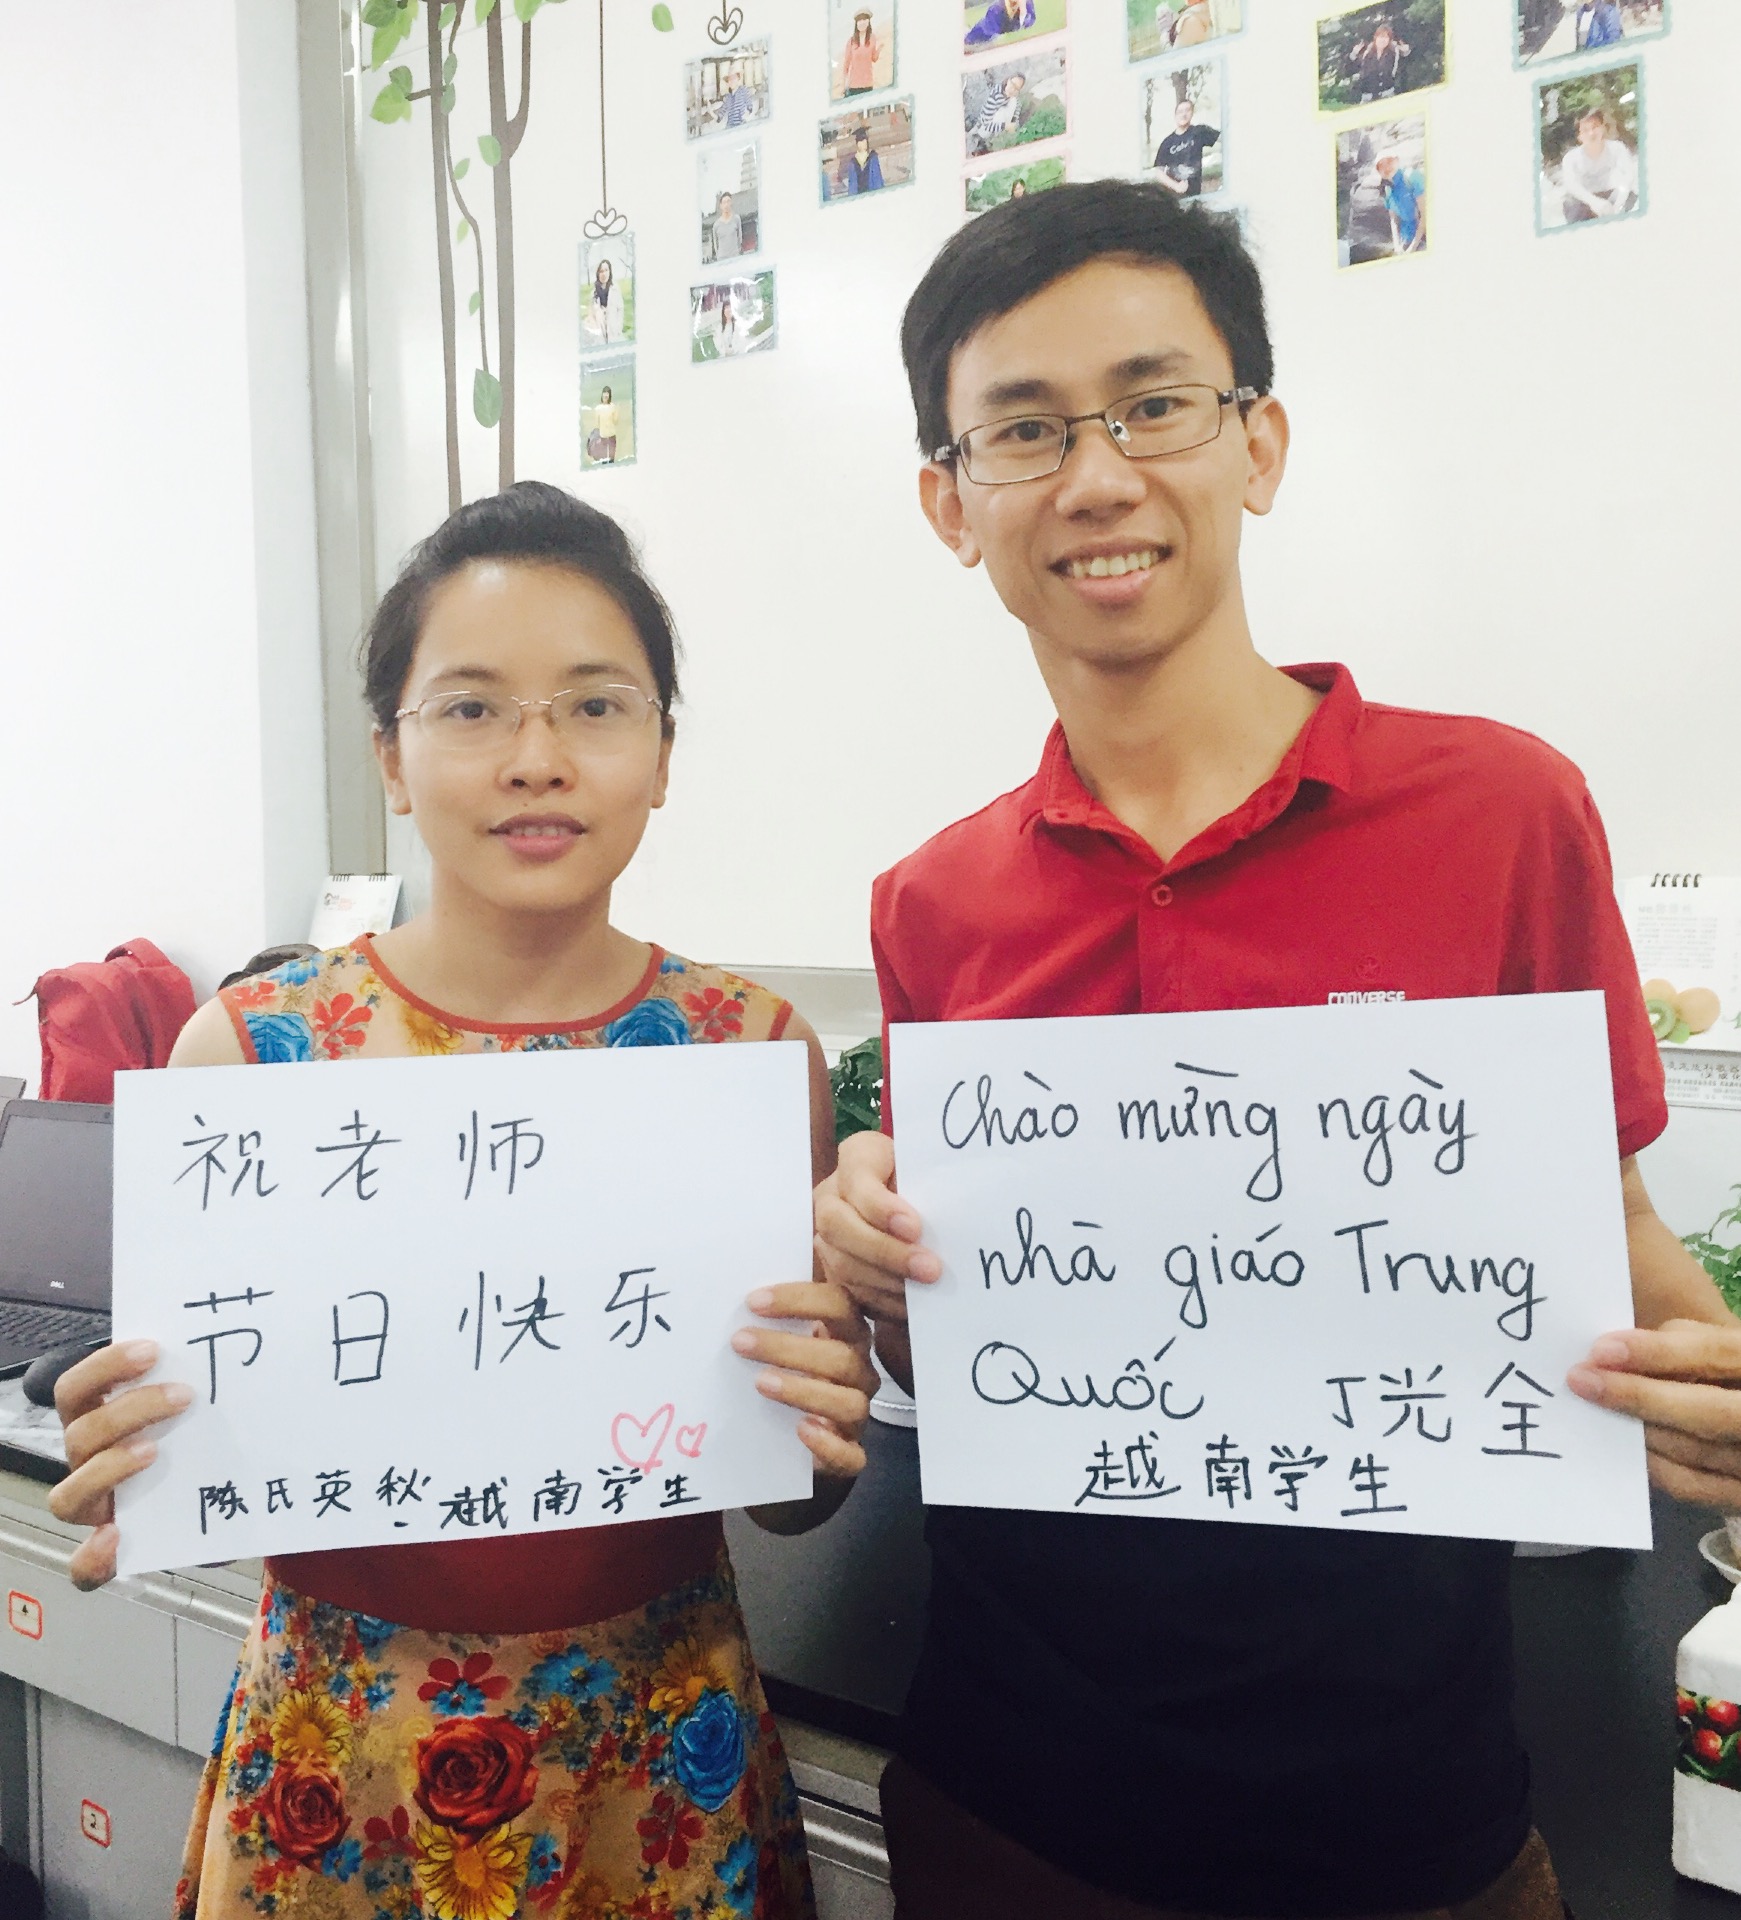 祝老师
节日快乐
陈氏英秋.越南学生
Chào mừng ngày
nhà giáo Trung
Quốc 丁光全
越南学生
CONVERSE
DELL
4
2